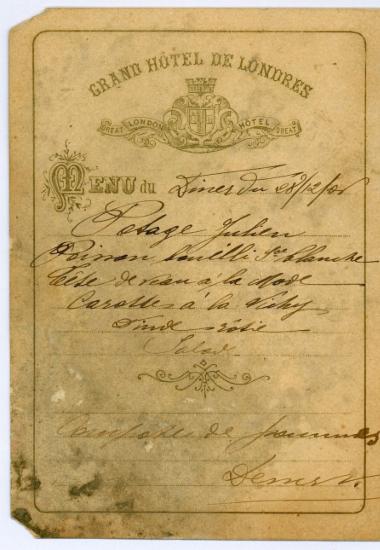 GRAND HÔTEL DE LONDRES
GREAT LONDON HÔTEL GREAT
MENU du Diner du 28/12/01
Potage Julien
Poisson bouilli Sce blanche
Tête de veau à la Mode
Carottes à la Vichy
Dinde rôtie
Salade
Compotes de pommes
Dessert